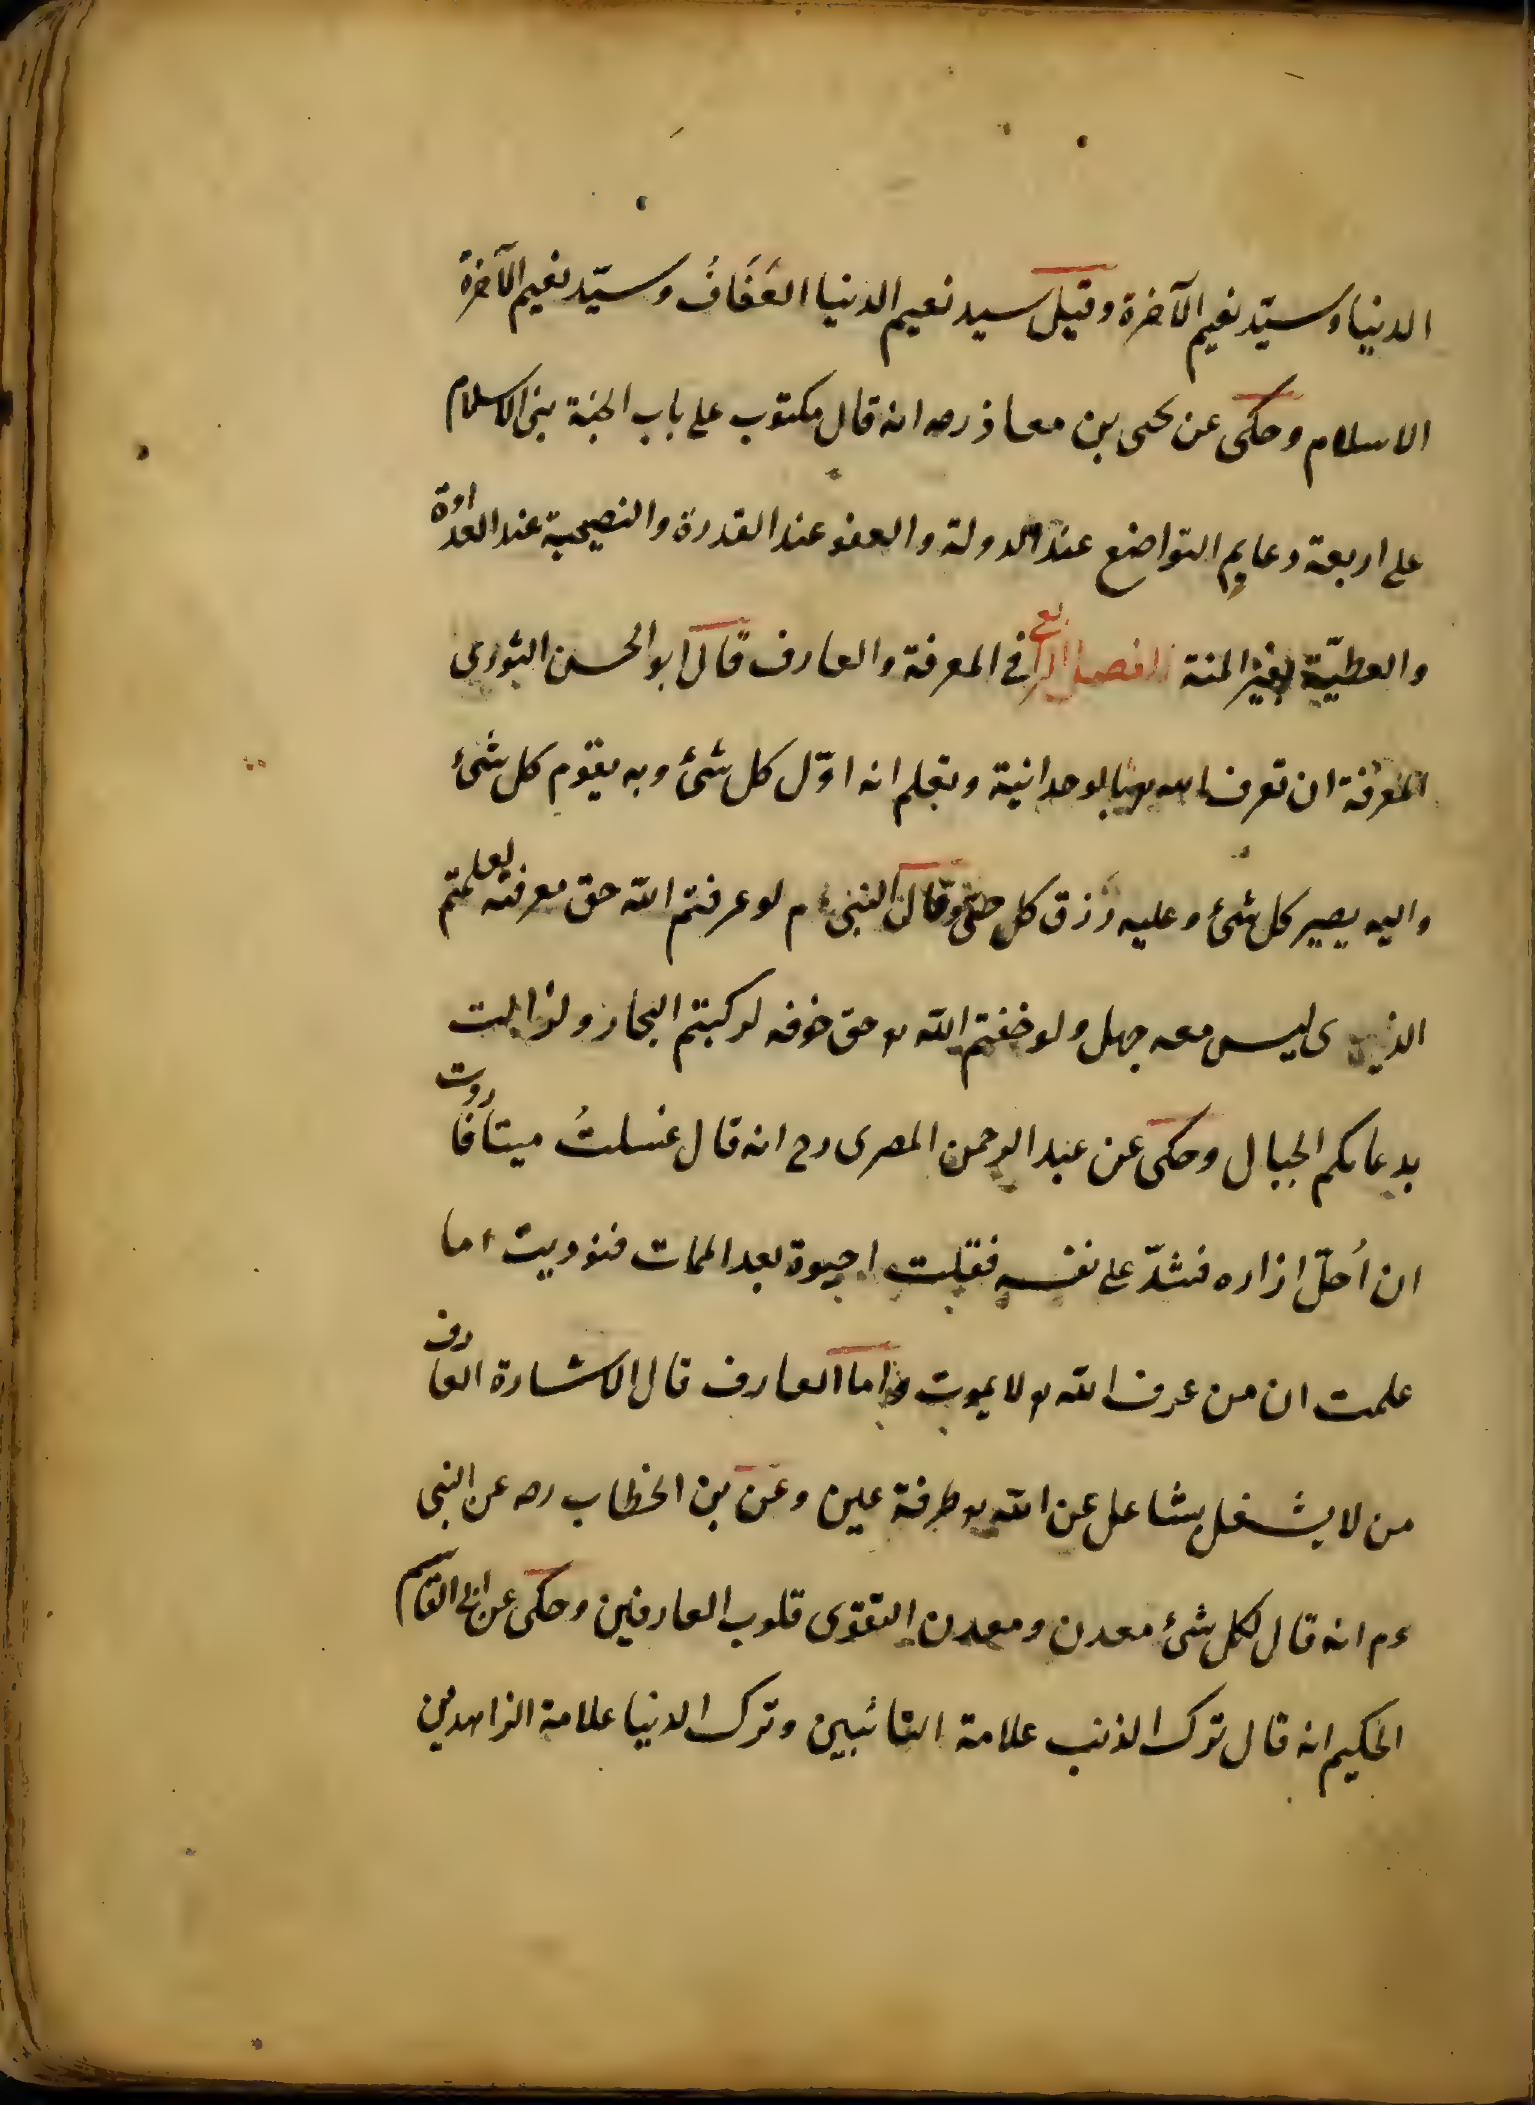 الدنيا وسيّد نعيم الآخرة وقيل سيد نعيم الدنيا العَفَافُ وسيّد نعيم الآخرة
الاسلام وحكى عن يحيى بن معاذ رحه انه قال مكتوب على باب الجنة بنى الاسلام
على اربعة دعايم التواضع عند الدولة والعفو عند القدرة والنصيحة عند العداوة
والعطيّة بغير المنة الفصل الرابع فى المعرفة والعارف قال ابو الحسن الثورى
المعرفة ان تعرف الله بالوحدانية وتعلم انه اوّل كل شئ وبه يقوم كل شئ
واليه يصير كل شئ وعليه رزق كل حىّ وقال النبى ءم لو عرفتم الله حق معرفته لعلمتم
الذى ليس معه جهل ولو خفتم الله حق خوفه لركبتم البحار ولزالت
بدعائكم الجبال وحكى عن عبد الرحمن المصرى رح انه قال غسلتُ ميتا فاردت
ان اُحلّ ازاره فشدّ على نفسه فقلت احيوة بعد الممات فنوديت اما
علمت ان من عرف الله لا يموت واما العارف قال الاشارة العارف
من لا يشغل بشاغل عن الله طرفة عين وعن بن الخطاب رحه عن النبى
ءم انه قال لكل شئ معدن ومعدن التقوى قلوب العارفين وحكى عن ابى القاسم
الحكيم انه قال ترك الذنب علامة التائبين وترك الدنيا علامة الزاهدين